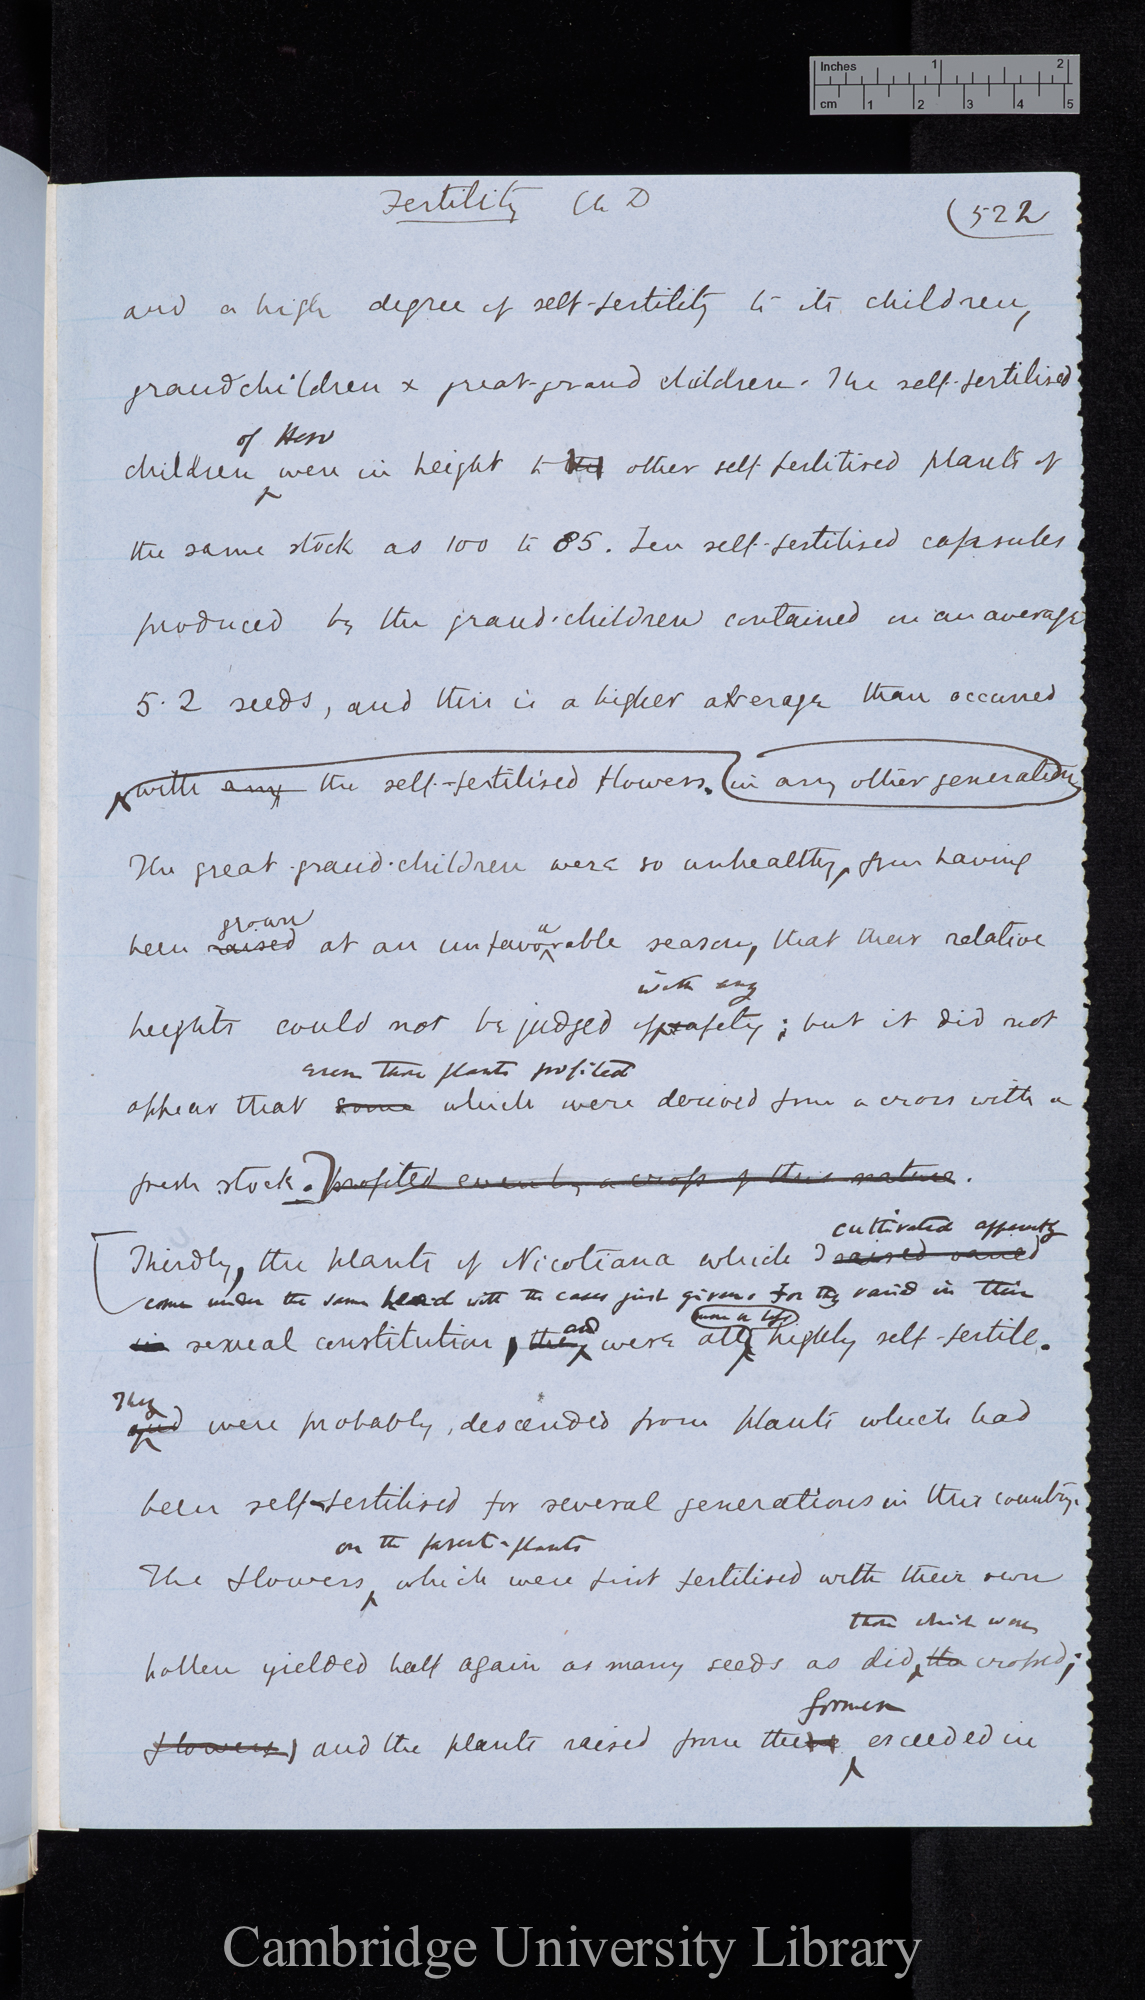 Inches 1 2
cm 1 2 3 4 5
Fertility Ch D
(522
and a high degree of self-fertility to its children,
grandchildren & great-grand children. The self-fertilised
of Hero
children were in height to the other self fertilised plants of
the same stock as 100 to 85. Ten self-fertilised capsules
produced by the grand-children contained on an average
5.2 seeds, and this is a higher average than occurred
with any the self-fertilised flowers. in any other generation
The great-grand-children were so unhealthy, from having
grown
been raised at an unfavourable season, that their relative
with any
heights could not be judged of safety; but it did not
even those plants profited
appear that some which were derived from a cross with a
fresh stock. profited even by a cross of this nature.
cultivated apparently
Thirdly, the plants of Nicotiana which I raised varied
come under the same head with the cases just given. for they varied in their
and more or less
in sexual constitution, they were all highly self-fertile.
They
and were probably descended from plants which had
been self-fertilised for several generations in this country.
on the parent-plants
The flowers, which were first fertilised with their own
those which were
pollen yielded half again as many seeds as did, the crossed;
former
flowers, and the plants raised from these exceeded in
Cambridge University Library